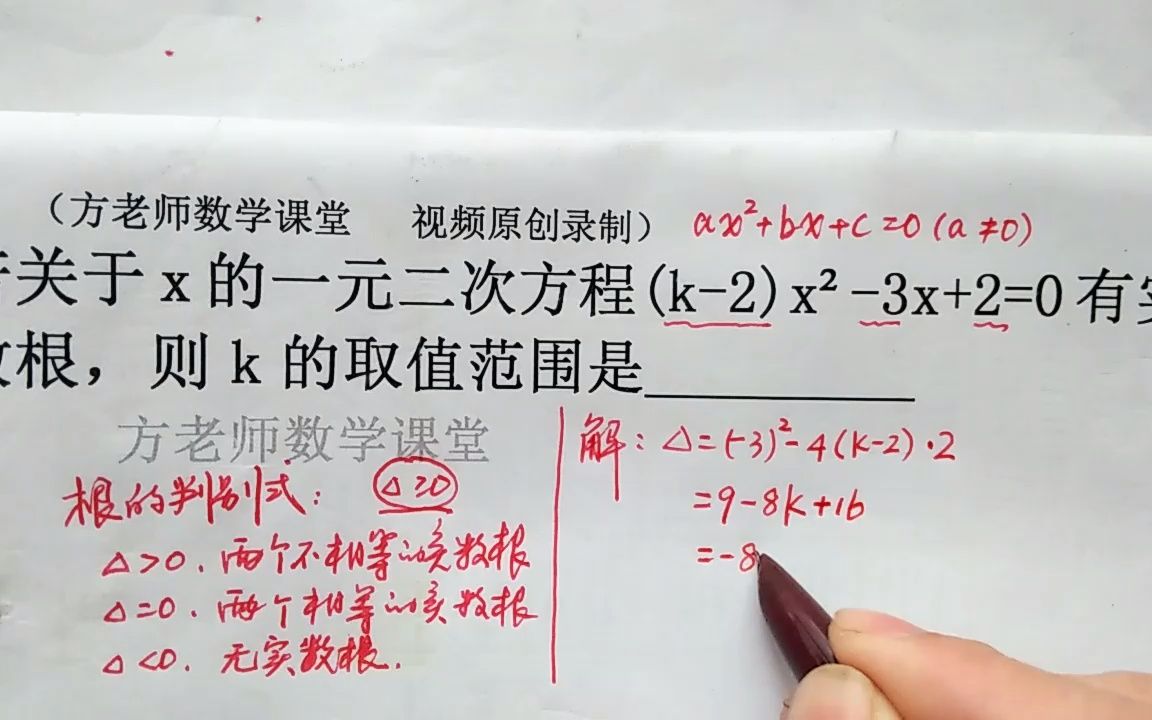 （方老师数学课堂 视频原创录制） ax²+bx+c=0(a≠0)
关于x的一元二次方程(k-2)x²-3x+2=0有实
根，则k的取值范围是________
方老师数学课堂
根的判别式： Δ≥0
Δ>0. 两个不相等的实数根
Δ=0. 两个相等的实数根
Δ<0. 无实数根.
解：Δ=(-3)²-4(k-2)·2
=9-8k+16
=-8